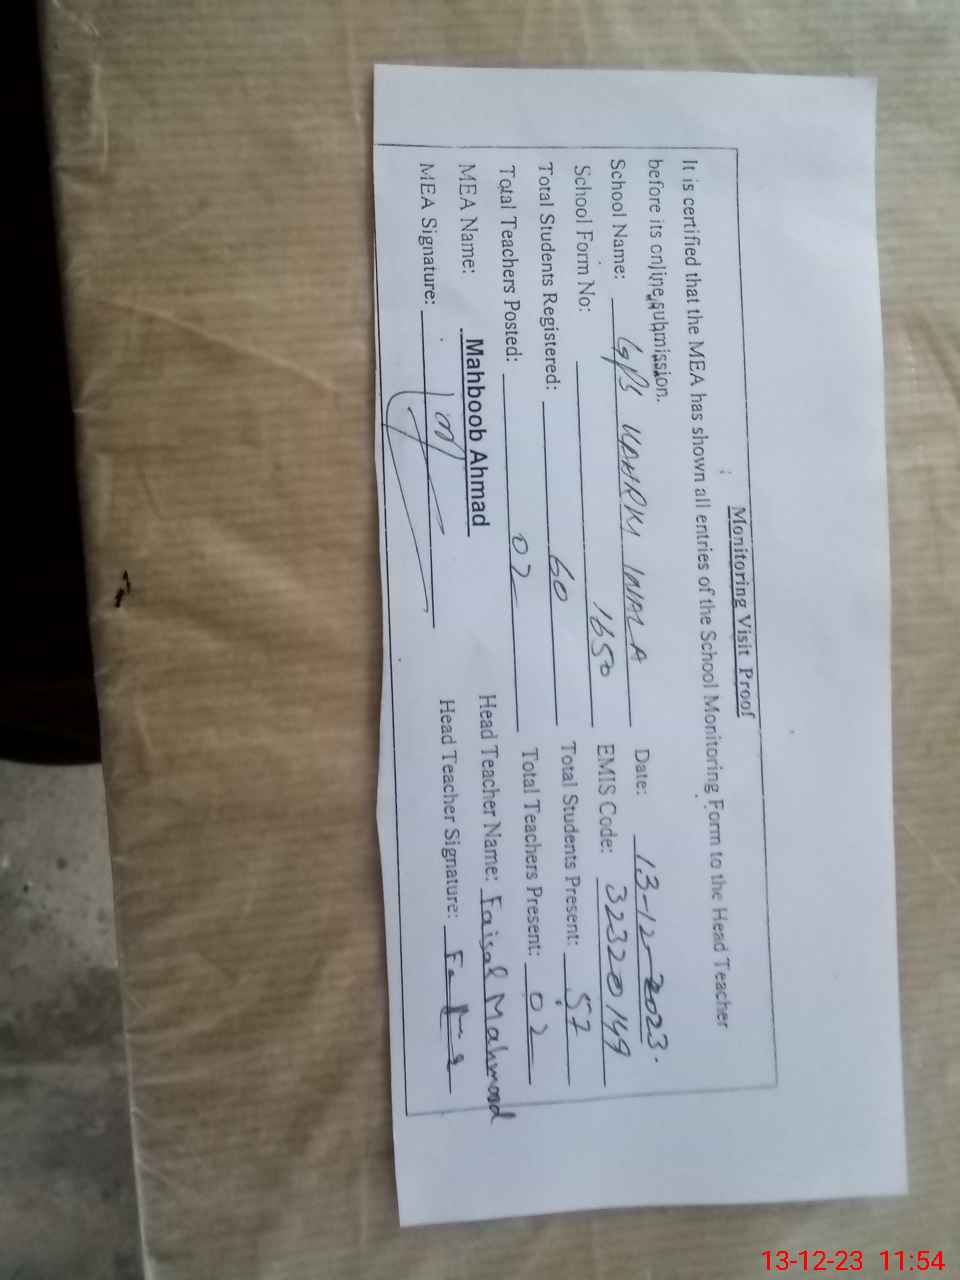 Monitoring Visit Proof
It is certified that the MEA has shown all entries of the School Monitoring Form to the Head Teacher
before its online submission.
School Name: GPS WALA Date: 13-12-2023.
School Form No: 1650 EMIS Code: 32320149
Total Students Registered: 60 Total Students Present: 57
Total Teachers Posted: 02 Total Teachers Present: 02
MEA Name: Mahboob Ahmad Head Teacher Name: Faisal Mahmood
MEA Signature: Head Teacher Signature:
13-12-23 11:54